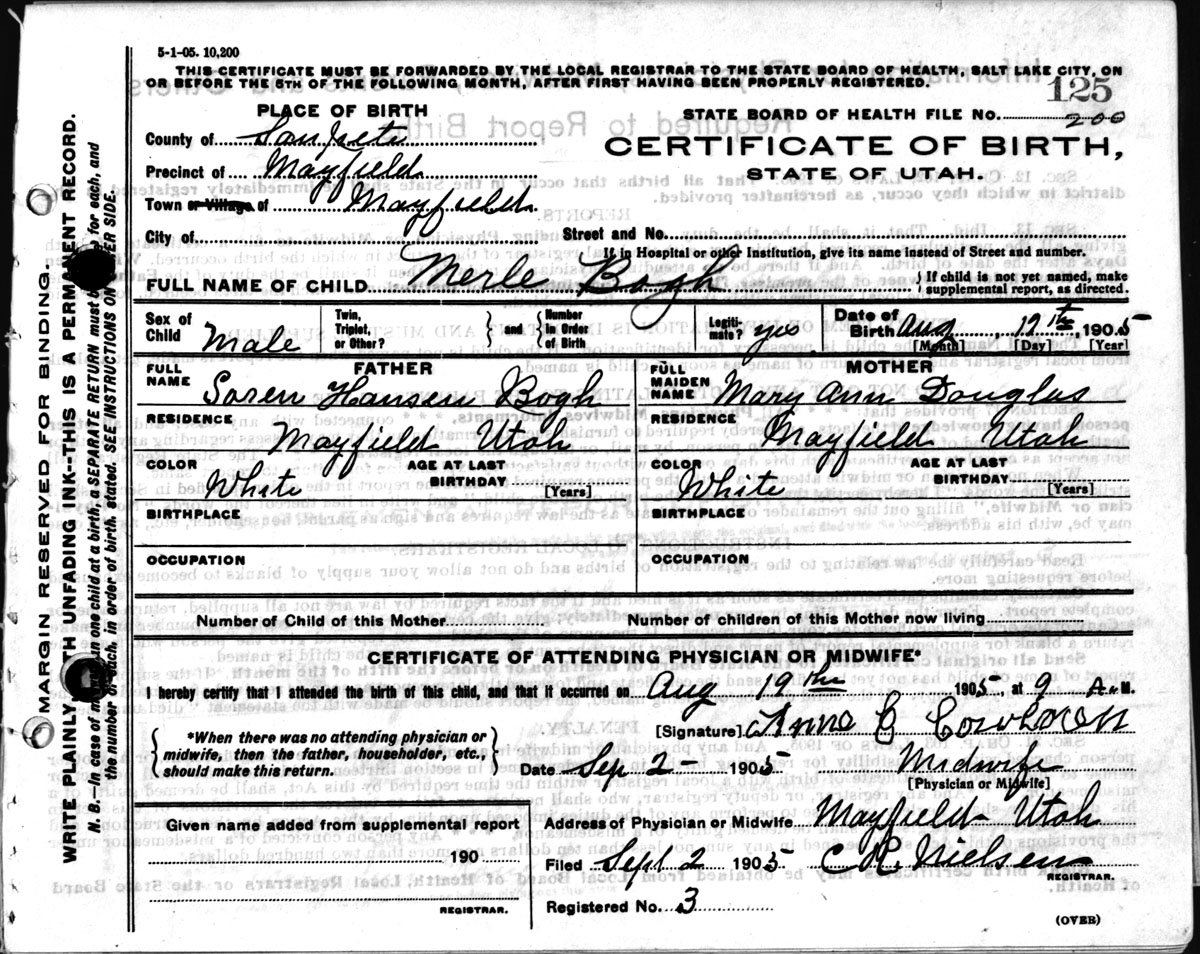 5-1-05. 10,200
THIS CERTIFICATE MUST BE FORWARDED BY THE LOCAL REGISTRAR TO THE STATE BOARD OF HEALTH, SALT LAKE CITY, ON
OR BEFORE THE 5TH OF THE FOLLOWING MONTH, AFTER FIRST HAVING BEEN PROPERLY REGISTERED.
125
PLACE OF BIRTH
STATE BOARD OF HEALTH FILE No. 200
County of Sanpete
CERTIFICATE OF BIRTH,
Precinct of Mayfield
STATE OF UTAH.
Town or Village of Mayfield
City of
Street and No.
If in Hospital or other Institution, give its name instead of Street and number.
FULL NAME OF CHILD Merle Bogh
} If child is not yet named, make
supplemental report, as directed.
Sex of Child Male
Twin, Triplet, or Other?
} and {
Number in Order of Birth
Legiti-mate? yes
Date of Birth Aug 19th 1905
[Month] [Day] [Year]
FATHER
FULL NAME Soren Hansen Bogh
RESIDENCE Mayfield Utah
COLOR White
AGE AT LAST BIRTHDAY
[Years]
BIRTHPLACE
OCCUPATION
MOTHER
FULL MAIDEN NAME Mary Ann Douglas
RESIDENCE Mayfield Utah
COLOR White
AGE AT LAST BIRTHDAY
[Years]
BIRTHPLACE
OCCUPATION
Number of Child of this Mother
Number of children of this Mother now living
CERTIFICATE OF ATTENDING PHYSICIAN OR MIDWIFE*
I hereby certify that I attended the birth of this child, and that it occurred on Aug 19th 1905, at 9 A. M.
*When there was no attending physician or
midwife, then the father, householder, etc.,
should make this return.
[Signature] Anna C
Date Sep 2 - 1905
Midwife
[Physician or Midwife]
Given name added from supplemental report
190
REGISTRAR.
Address of Physician or Midwife Mayfield Utah
Filed Sept. 2 1905 C R Nielsen
REGISTRAR.
Registered No. 3
(OVER)
MARGIN RESERVED FOR BINDING.
WRITE PLAINLY WITH UNFADING INK--THIS IS A PERMANENT RECORD.
N. B.—In case of more than one child at a birth, a SEPARATE RETURN must be for each, and
the number of each, in order of birth, stated. SEE INSTRUCTIONS ON OTHER SIDE.